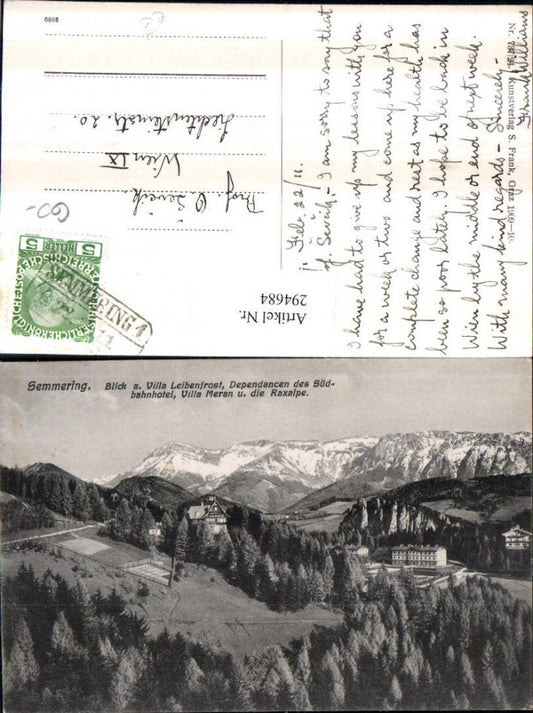 Feb. 22/11.
Prof. Sevčik,- I am sorry to say that
I have had to give up my lessons with you
for a week or two and come up here for a
complete change and rest as my health has
been so poor lately. I hope to be back in
Wien by the middle or end of next week.
With many kind regards - Sincerely -
Frank Williams
Kunstverlag S. Frank, Graz 1909-10.
Prof. O. Sevčik
Wien IX
Liechtensteinstr. 20.
8589
60-
5 HELLER 5
SEMMERING 1
Artikel Nr.
294684
Semmering. Blick a. Villa Leibenfrost, Dependancen des Süd-
bahnhotel, Villa Meran u. die Raxalpe.